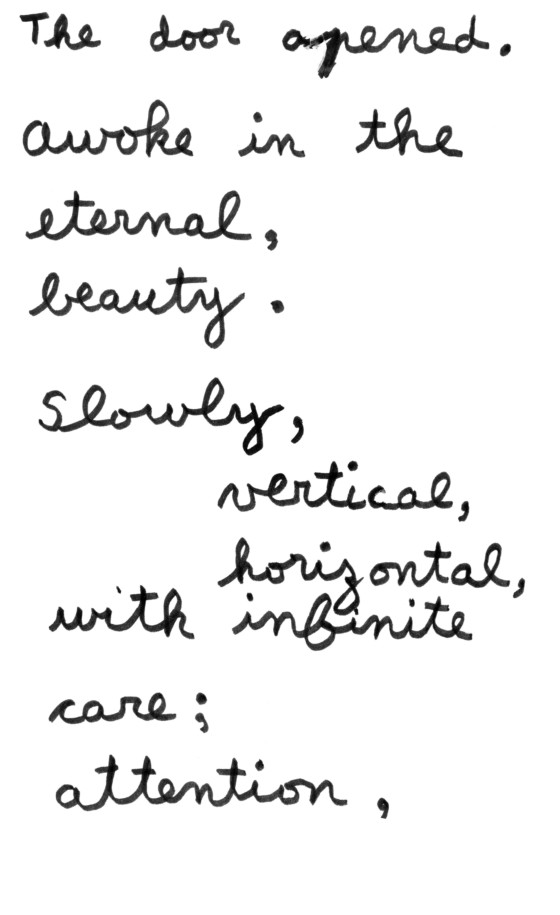 The door opened.
awoke in the
eternal,
beauty.
Slowly,
vertical,
horizontal,
with infinite
care;
attention,